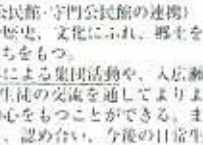 公民館・守門公民館の連携)
歴史、文化にふれ、郷土を
ちをもつ。
による集団活動や、入広瀬
生徒の交流を通してよりよ
の心をもつことができる。ま
、認め合い、今後の日常生